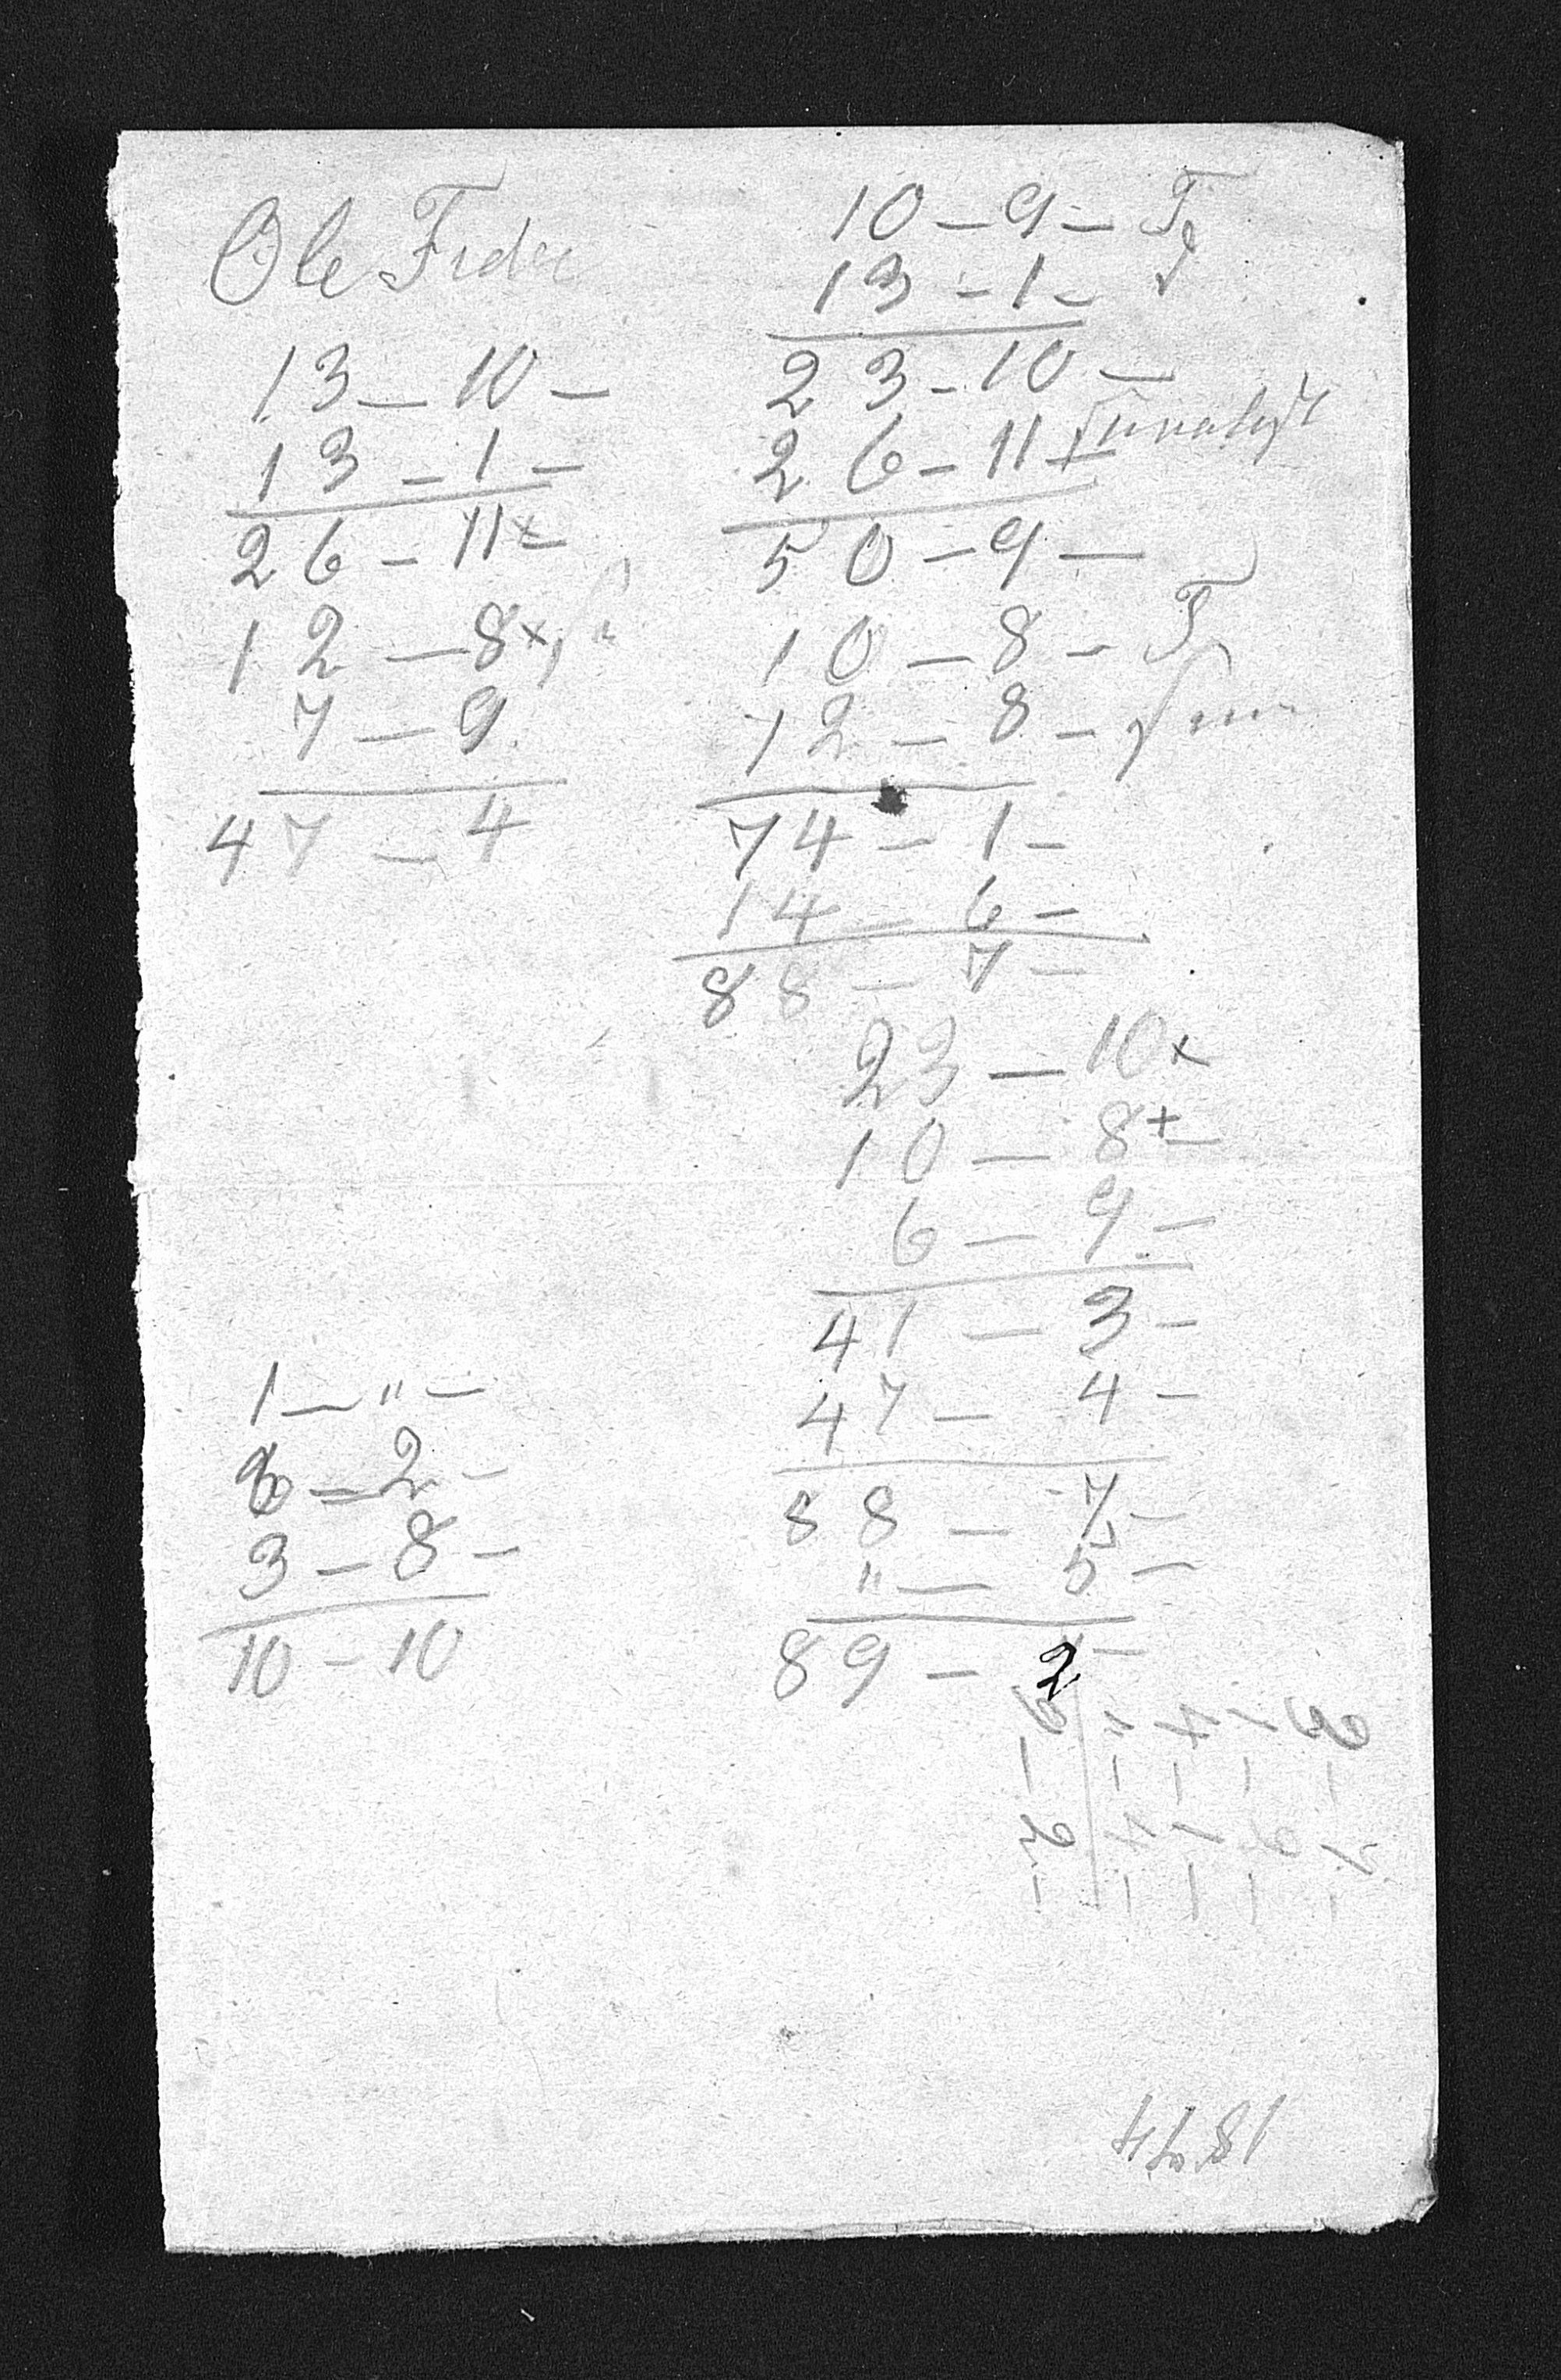 Ole
13 — 10 —
13 — 1 —
26 — 11 x —
12 — 8 x
7 — 9
47 — 4
10 — 9 — T
13 — 1 —
23 — 10 —
26 — 11 —
50 — 9 —
10 — 8 — T
12 — 8 —
74 — 1 —
14 — 6 —
88 — 7 —
23 — 10 x
10 — 8 + —
6 — 9 —
41 — 3 —
47 — 4 —
88 — 7 —
" — 5 —
89 — 2 —
1 — " —
6 — 2 —
3 — 8 —
10 — 10